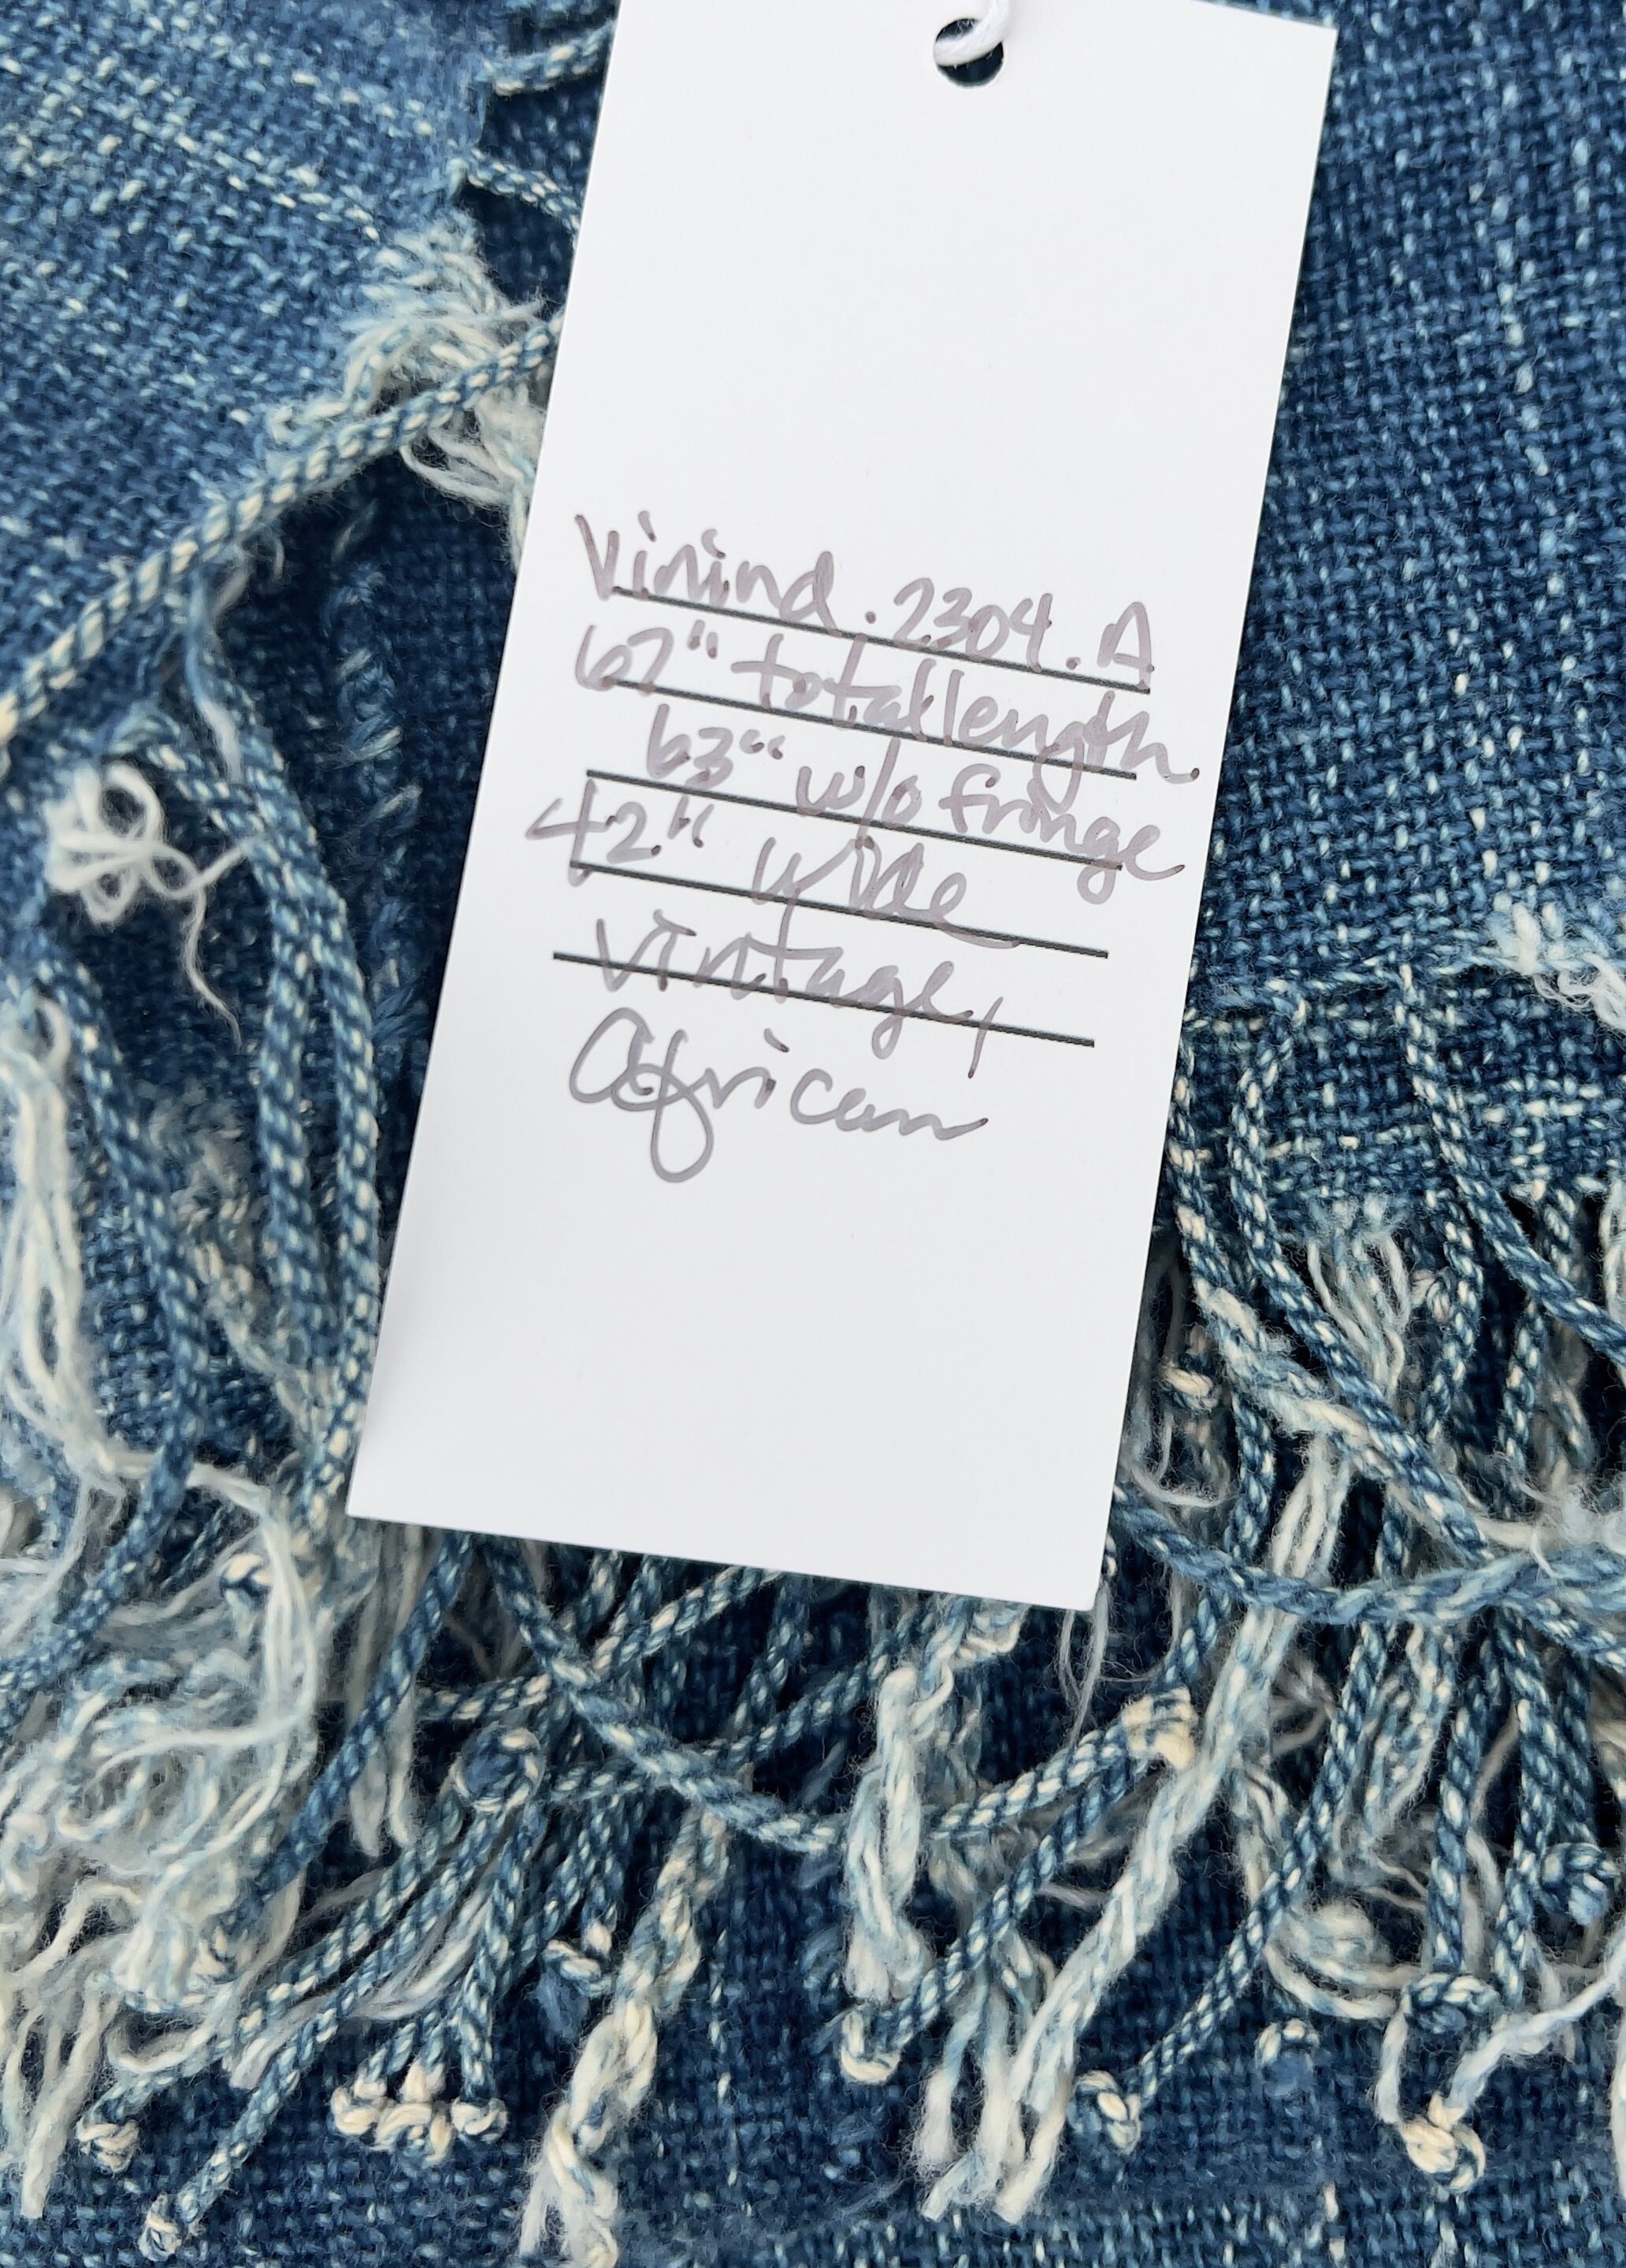 Vinind.2304.A
67" total length
63" w/o fringe
42" wide
vintage,
African